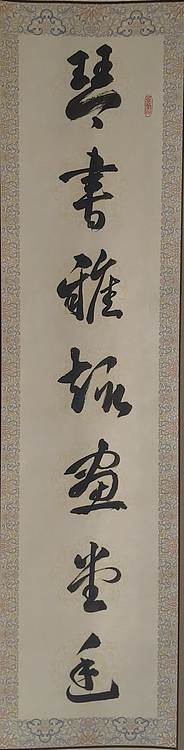 琴書雅趣畫堂